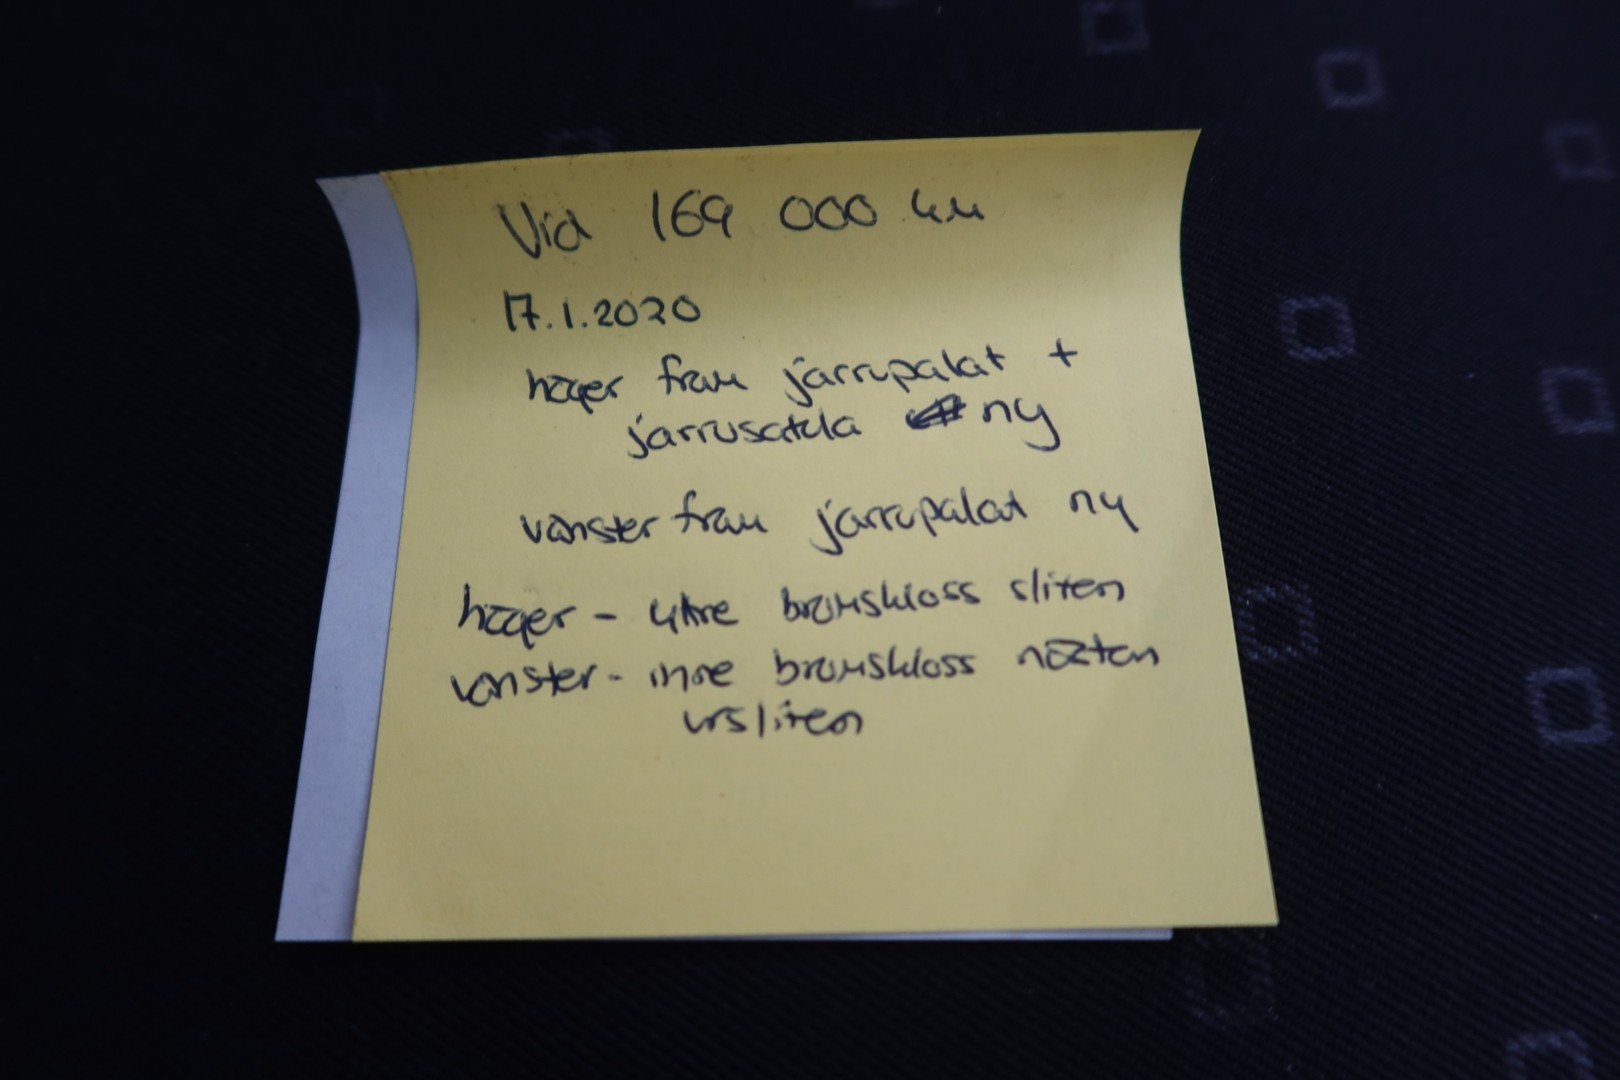 Vid 169 000 km
17.1.2020
höger fram jarrupalat +
jarrusatula ny
vänster fram jarrupalat ny
höger - yttre bromskloss sliten
vänster - inre bromskloss nästan
utsliten